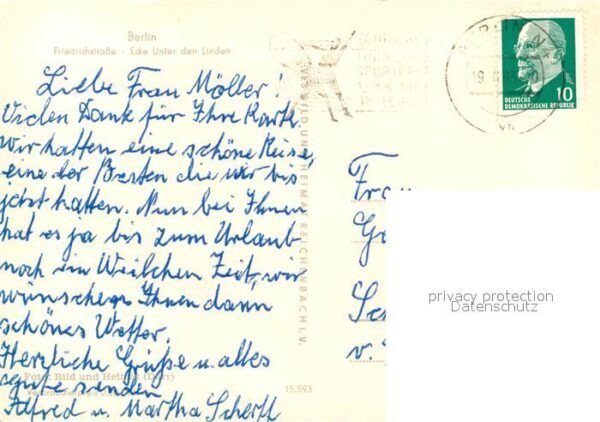 Berlin
Friedrichstraße - Ecke Unter den Linden
Liebe Frau Möller!
Vielen Dank für Ihre Karte.
wir hatten eine schöne Reise,
eine der Besten die wir bis
jetzt hatten. Nun bei Ihnen
hat es ja bis zum Urlaub
noch ein Weilchen Zeit, wir
wünschen Ihnen dann
schönes Wetter.
Herzliche Grüße u. alles
gute senden
Alfred u. Martha
Foto: Bild und Heimat
15/593
VEB BILD UND HEIMAT REICHENBACH I. V.
DEUTSCHE
DEMOKRATISCHE REPUBLIK
10
BERLIN
Frau
v.
privacy protection
Datenschutz